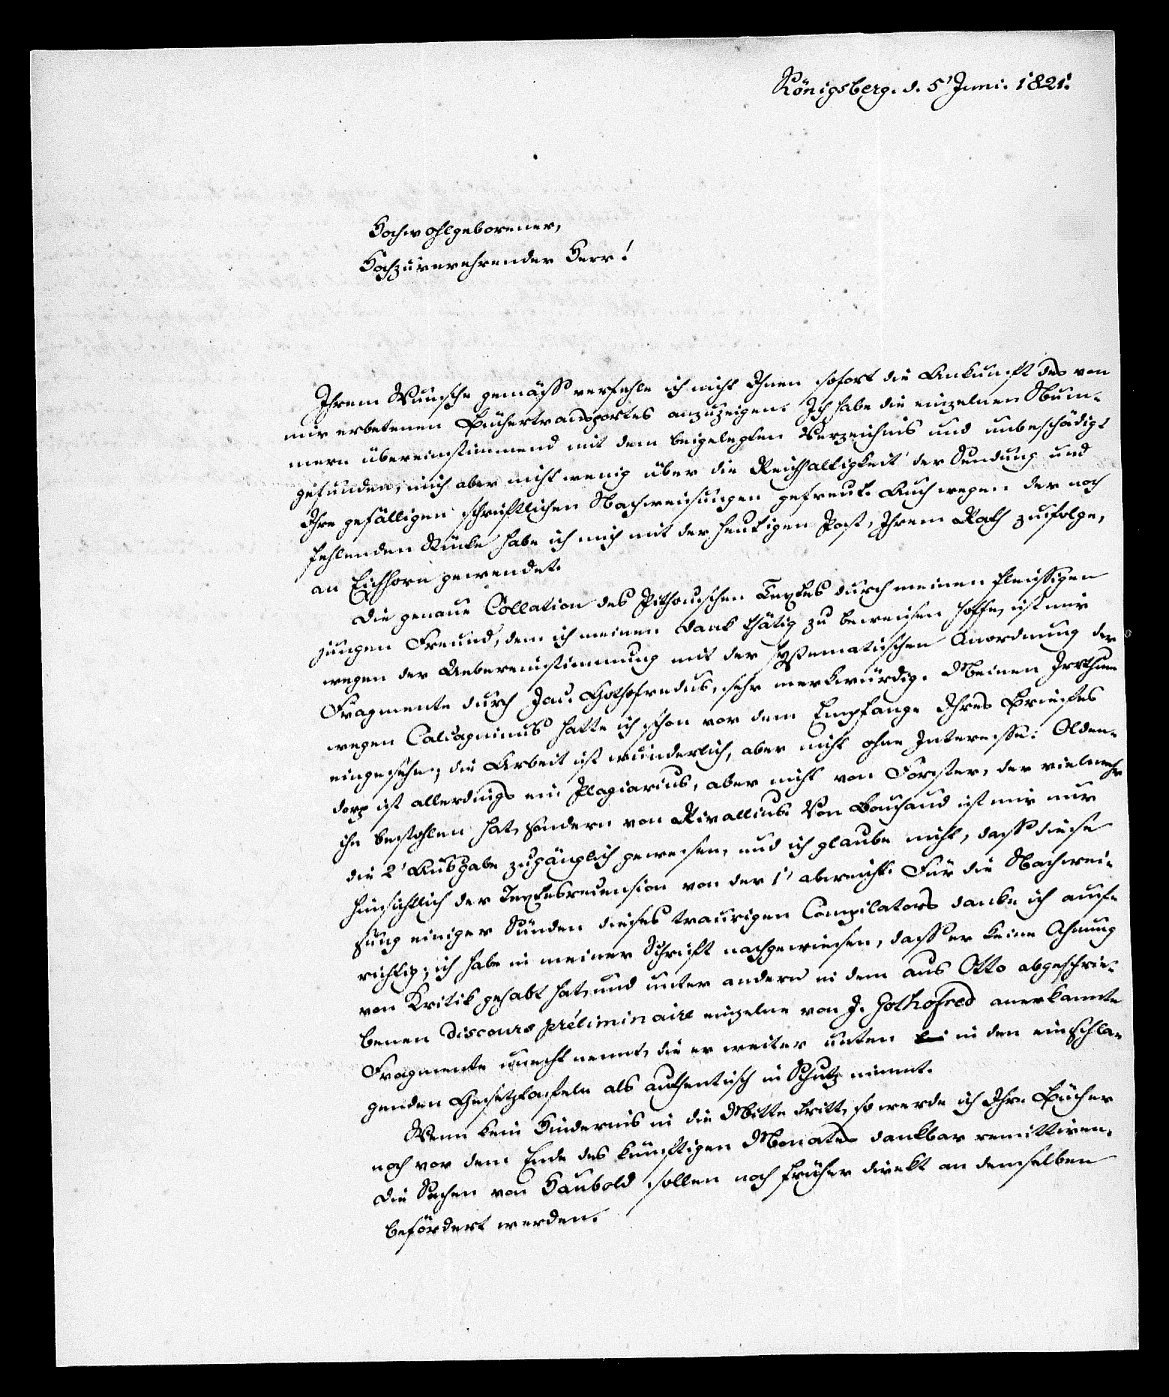 Königsberg. d. 5' Juni. 1821.
Hochwohlgeborener,
Hochzuverehrender Herr!
Ihrem Wunsche gemäss verfehle ich nicht Ihnen sofort die Ankunft des von
mir erbetenen Büchertransportes anzuzeigen. Ich habe die einzelnen Num-
mern übereinstimmend mit dem beigelegten Verzeichnis und unbeschädigt
gefunden, mich aber nicht wenig über die Reichhaltigkeit der Sendung und
Ihre gefälligen schriftlichen Nachweisungen gefreut. Auch wegen der noch
fehlenden Stücke habe ich mich mit der heutigen Post, Ihrem Rath zufolge,
an Eichhorn gewendet.
Die genaue Collation des Pithouischen Textes durch meinen fleissigen
jungen Freund, dem ich meinen Dank thätig zu beweisen hoffe, ist mir
wegen der Uebereinstimmung mit der systematischen Anordnung der
Fragmente durch Jac. Gothofredus, sehr merkwürdig. Meinen Irrthum
wegen Calcagninus hatte ich schon vor dem Empfange Ihres Briefes
eingesehn; die Arbeit ist wunderlich, aber nicht ohne Interesse. Olden-
dorp ist allerdings ein Plagiarius, aber nicht von Forster, der vielmehr
ihn bestohlen hat, sondern von Rivallius. Von Bouchaud ist mir nur
die 2' Ausgabe zugänglich gewesen, und ich glaube nicht, dass diese
hinsichtlich der Textesrecension von der 1' abweicht. Für die Nachwei-
sung einiger Sünden dieses traurigen Compilators danke ich auf-
richtig; ich habe in meiner Schrift nachgewiesen, dass er keine Ahnung
von Kritik gehabt hat, und unter andern in dem aus Otto abgeschrie-
benen Discours préliminaire einzelne von J. Gothofred anerkannte
Fragmente unecht nennt, die er weiter unten in den einschla-
genden Gesetztafeln als authentisch in Schutz nimmt.
Wenn kein Hindernis in die Mitte tritt, so werde ich Ihre Bücher
noch vor dem Ende des künftigen Monates dankbar remittiren.
Die Sachen von Haubold sollen noch früher direkt an denselben
befördert werden.